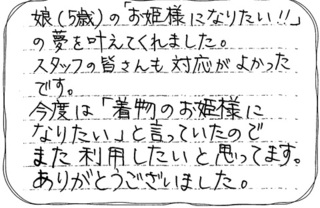 娘(5歳)の「お姫様になりたい!!」
の夢を叶えてくれました。
スタッフの皆さんも対応がよかった
です。
今度は「着物のお姫様に
なりたい」と言っていたので
また利用したいと思ってます。
ありがとうございました。